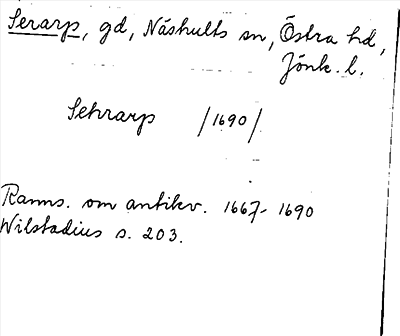 Serarp, gd, Näshults sn, Östra hd,
Jönk. l.
Sehrarp /1690/
Ranns. om antikv. 1667-1690
Wilstadius s. 203.